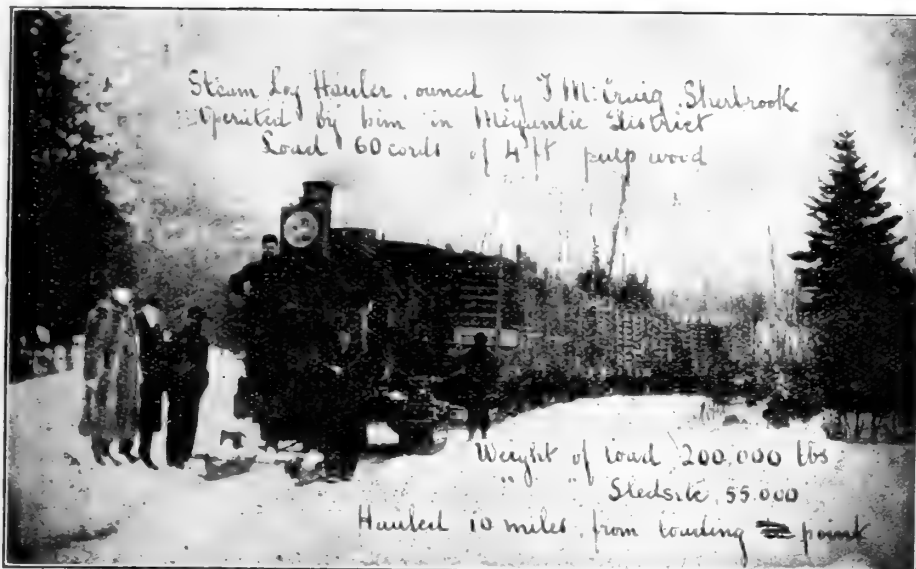 Steam Log Hauler, owned by J M: Craig, Sherbrooke
Operated by him in Megantic District
Load 60 cords of 4 ft pulp wood
Weight of load 200,000 lbs
" " Sleds etc. 55.000
Hauled 10 miles, from loading point